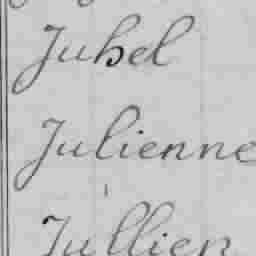 Juhel
Julienne
Jullien